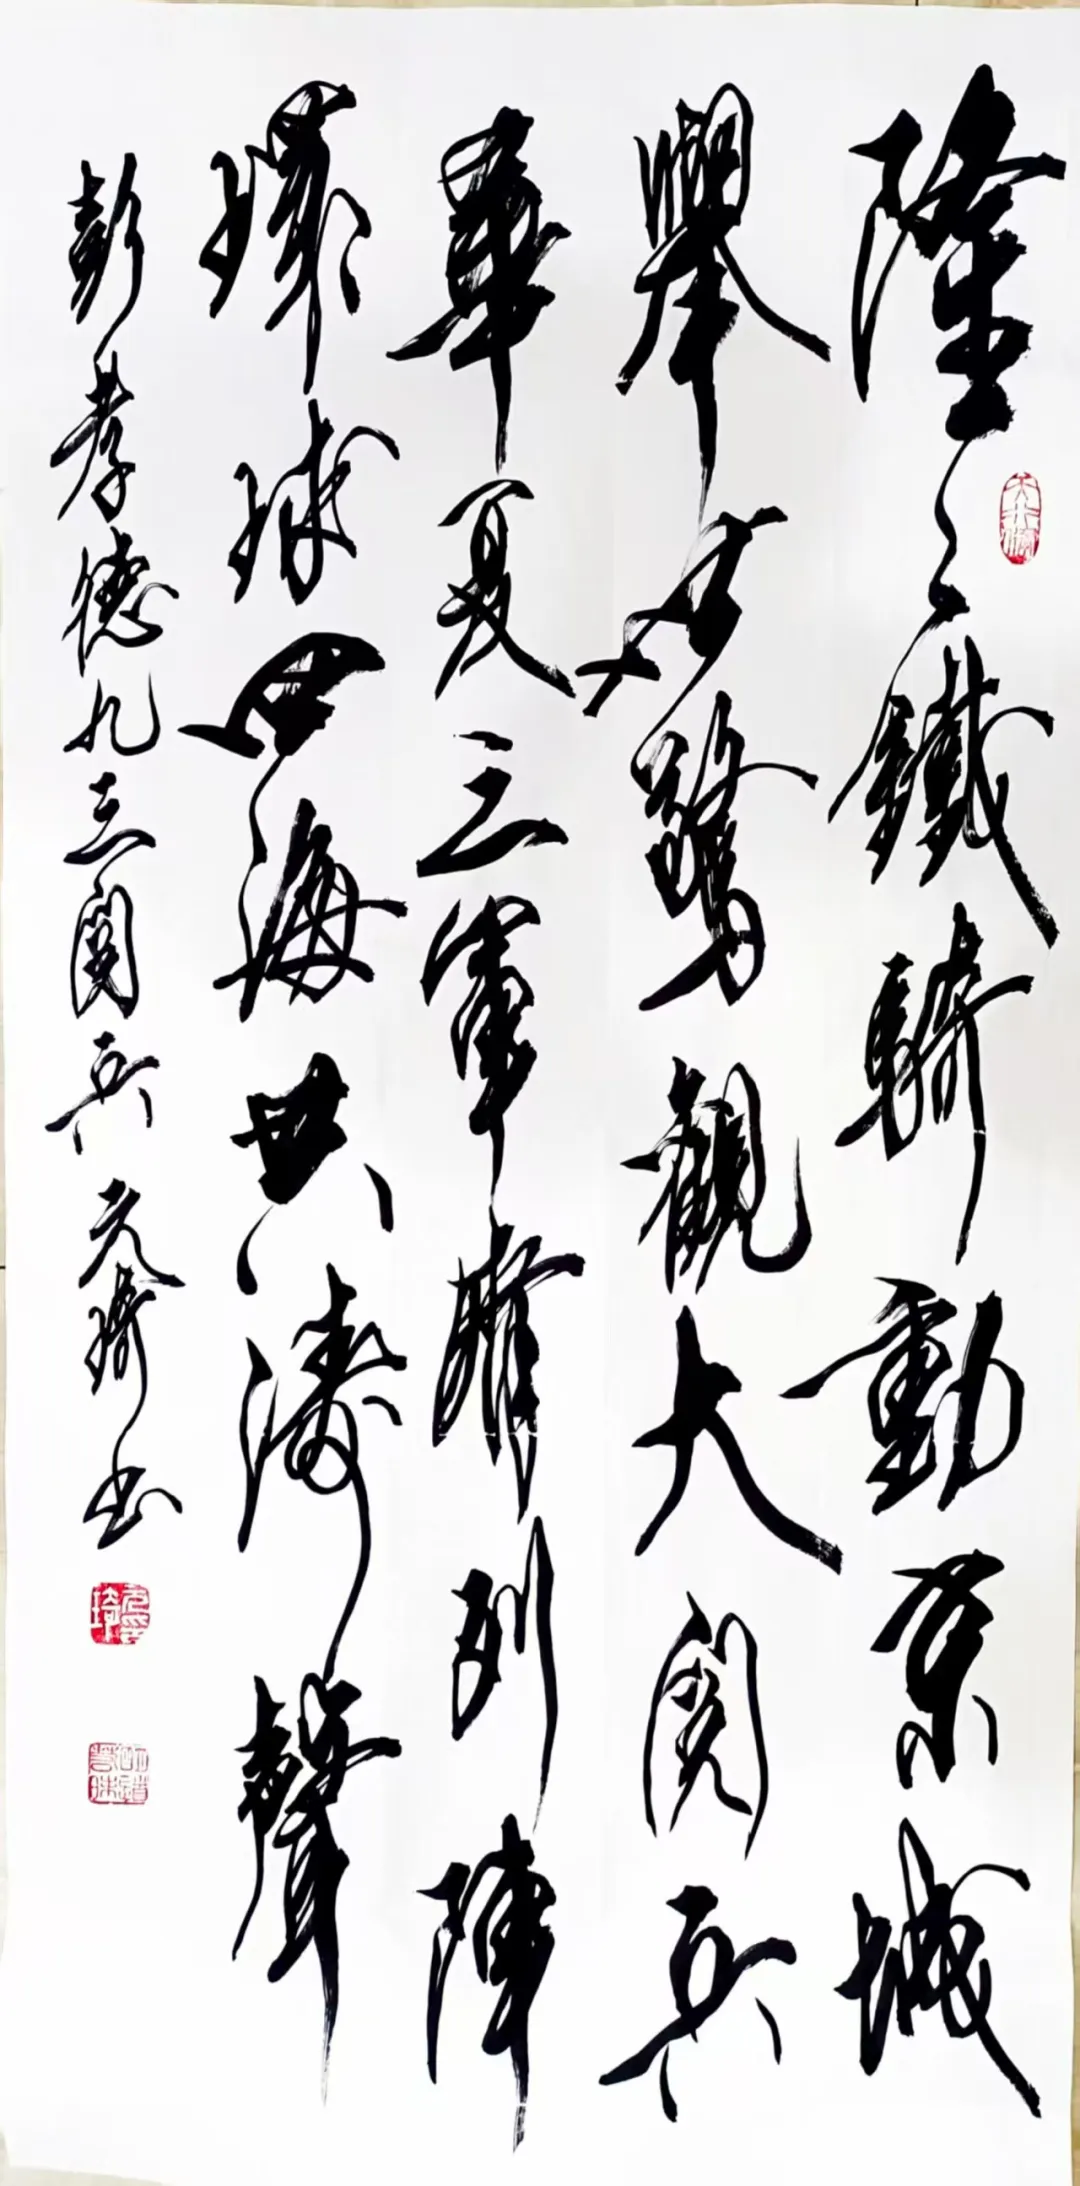 隆々鐵騎動京城
舉世驚觀大閱兵
華夏三軍列陣
環球四海共濤聲
彭孝德九三閱兵 元琦書